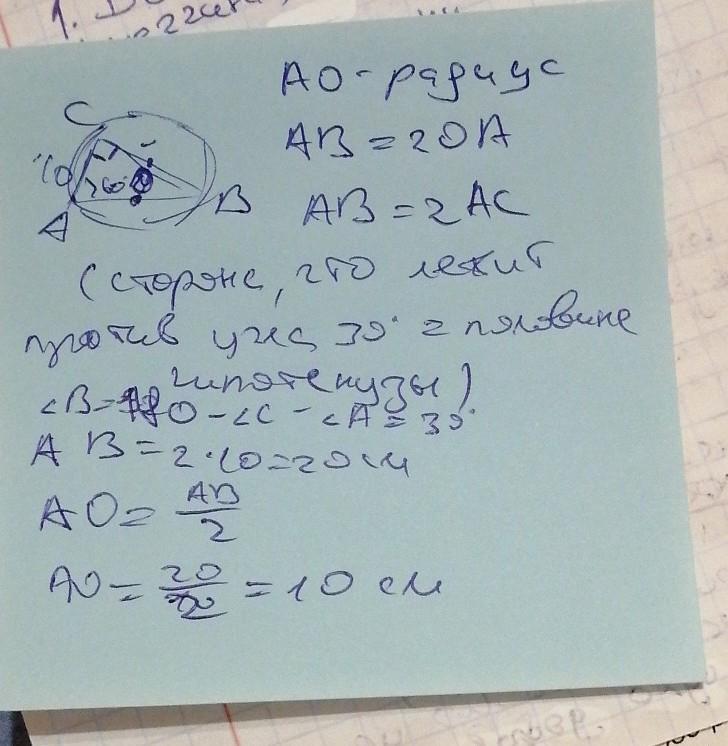 AO - радиус
AB = 2OA
AB = 2AC
C
10
60°
O
A
B
(стороне, что лежит
против угла 30° = половине
гипотенузы)
∠B = 180 - ∠C - ∠A = 30°
AB = 2·10 = 20 см
AO = AB/2
AO = 20/2 = 10 см